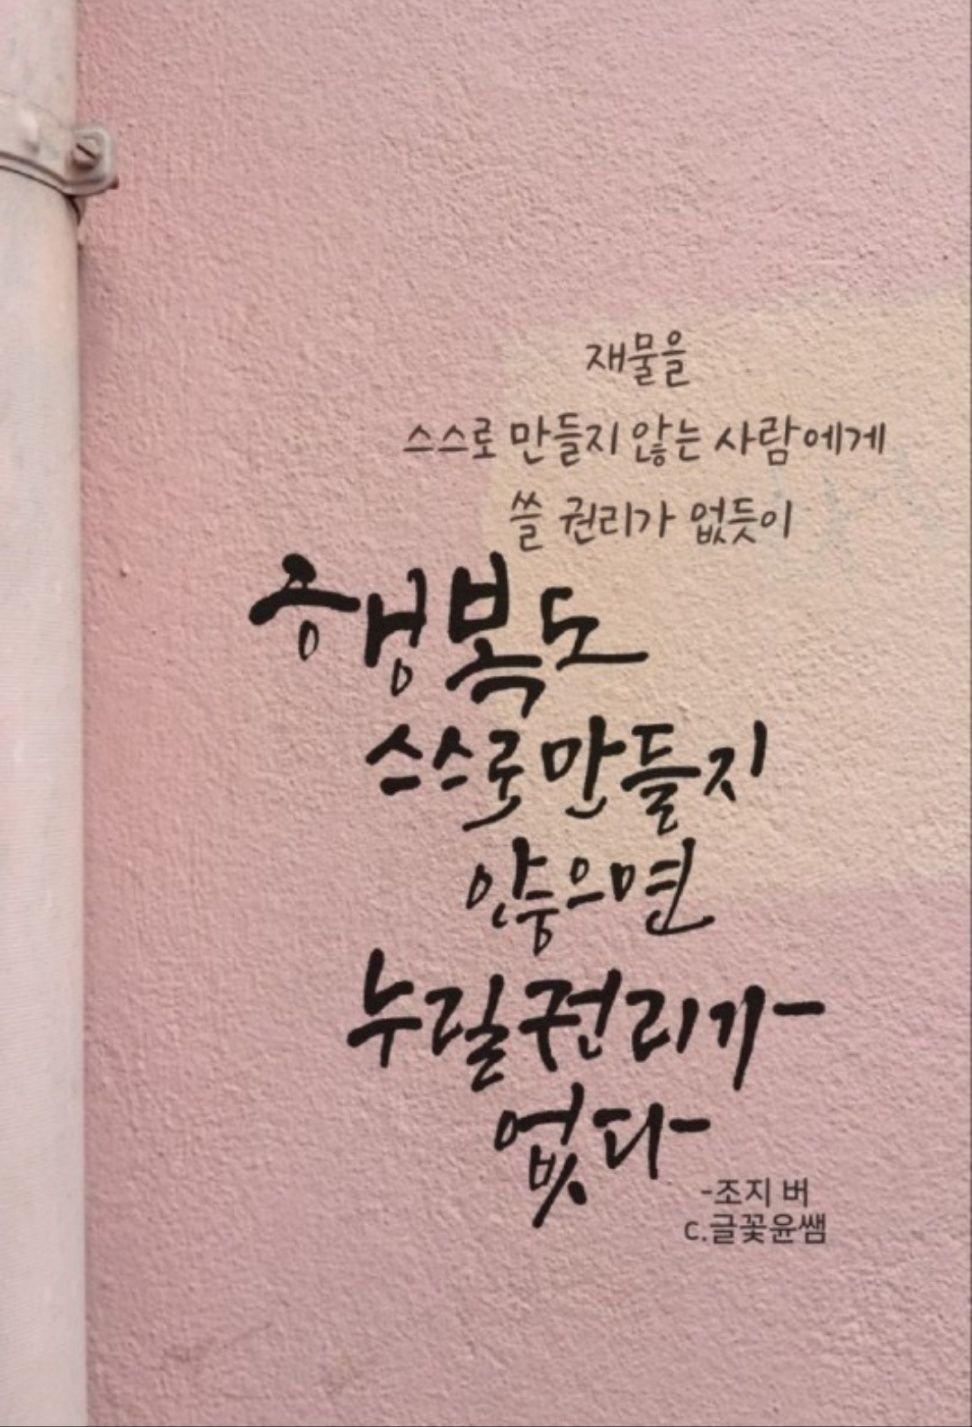 재물을
스스로 만들지 않는 사람에게
쓸 권리가 없듯이
행복도
스스로 만들지
않으면
누릴 권리가
없다
-조지 버
c.글꽃윤쌤